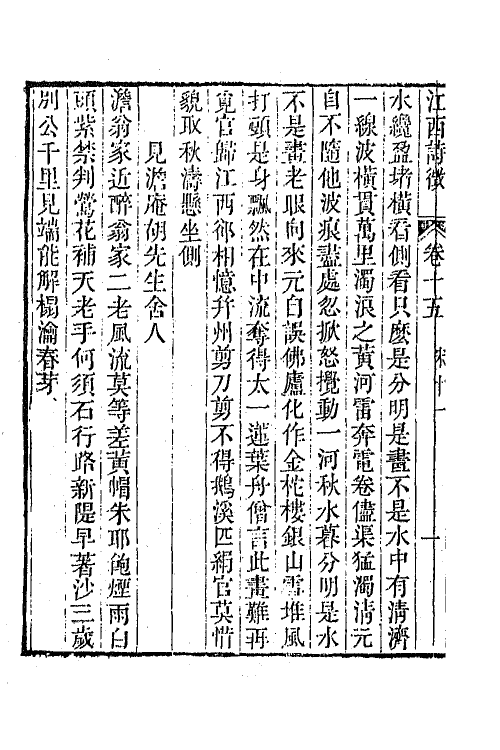 江西詩徵 卷十五 宋十一 一
水纔盈堵橫看側看只麽是分明是畫不是水中有淸濟
一線波橫貫萬里濁浪之黃河雷奔電卷儘渠猛濁淸元
自不隨他波痕盡處忽掀怒攪動一河秋水暮分明是水
不是畫老眼向來元自誤佛廬化作金柁樓銀山雪堆風
打頭是身飄然在中流奪得太一蓮葉舟僧言此畫難再
覓官歸江西卻相憶幷州剪刀剪不得鵝溪匹絹官莫惜
貌取秋濤懸坐側
見澹庵胡先生舍人
澹翁家近醉翁家二老風流莫等差黃帽朱耶飽煙雨白
頭紫禁判鶯花補天老手何須石行路新隄早著沙三歲
別公千里見端能解榻瀹春芽